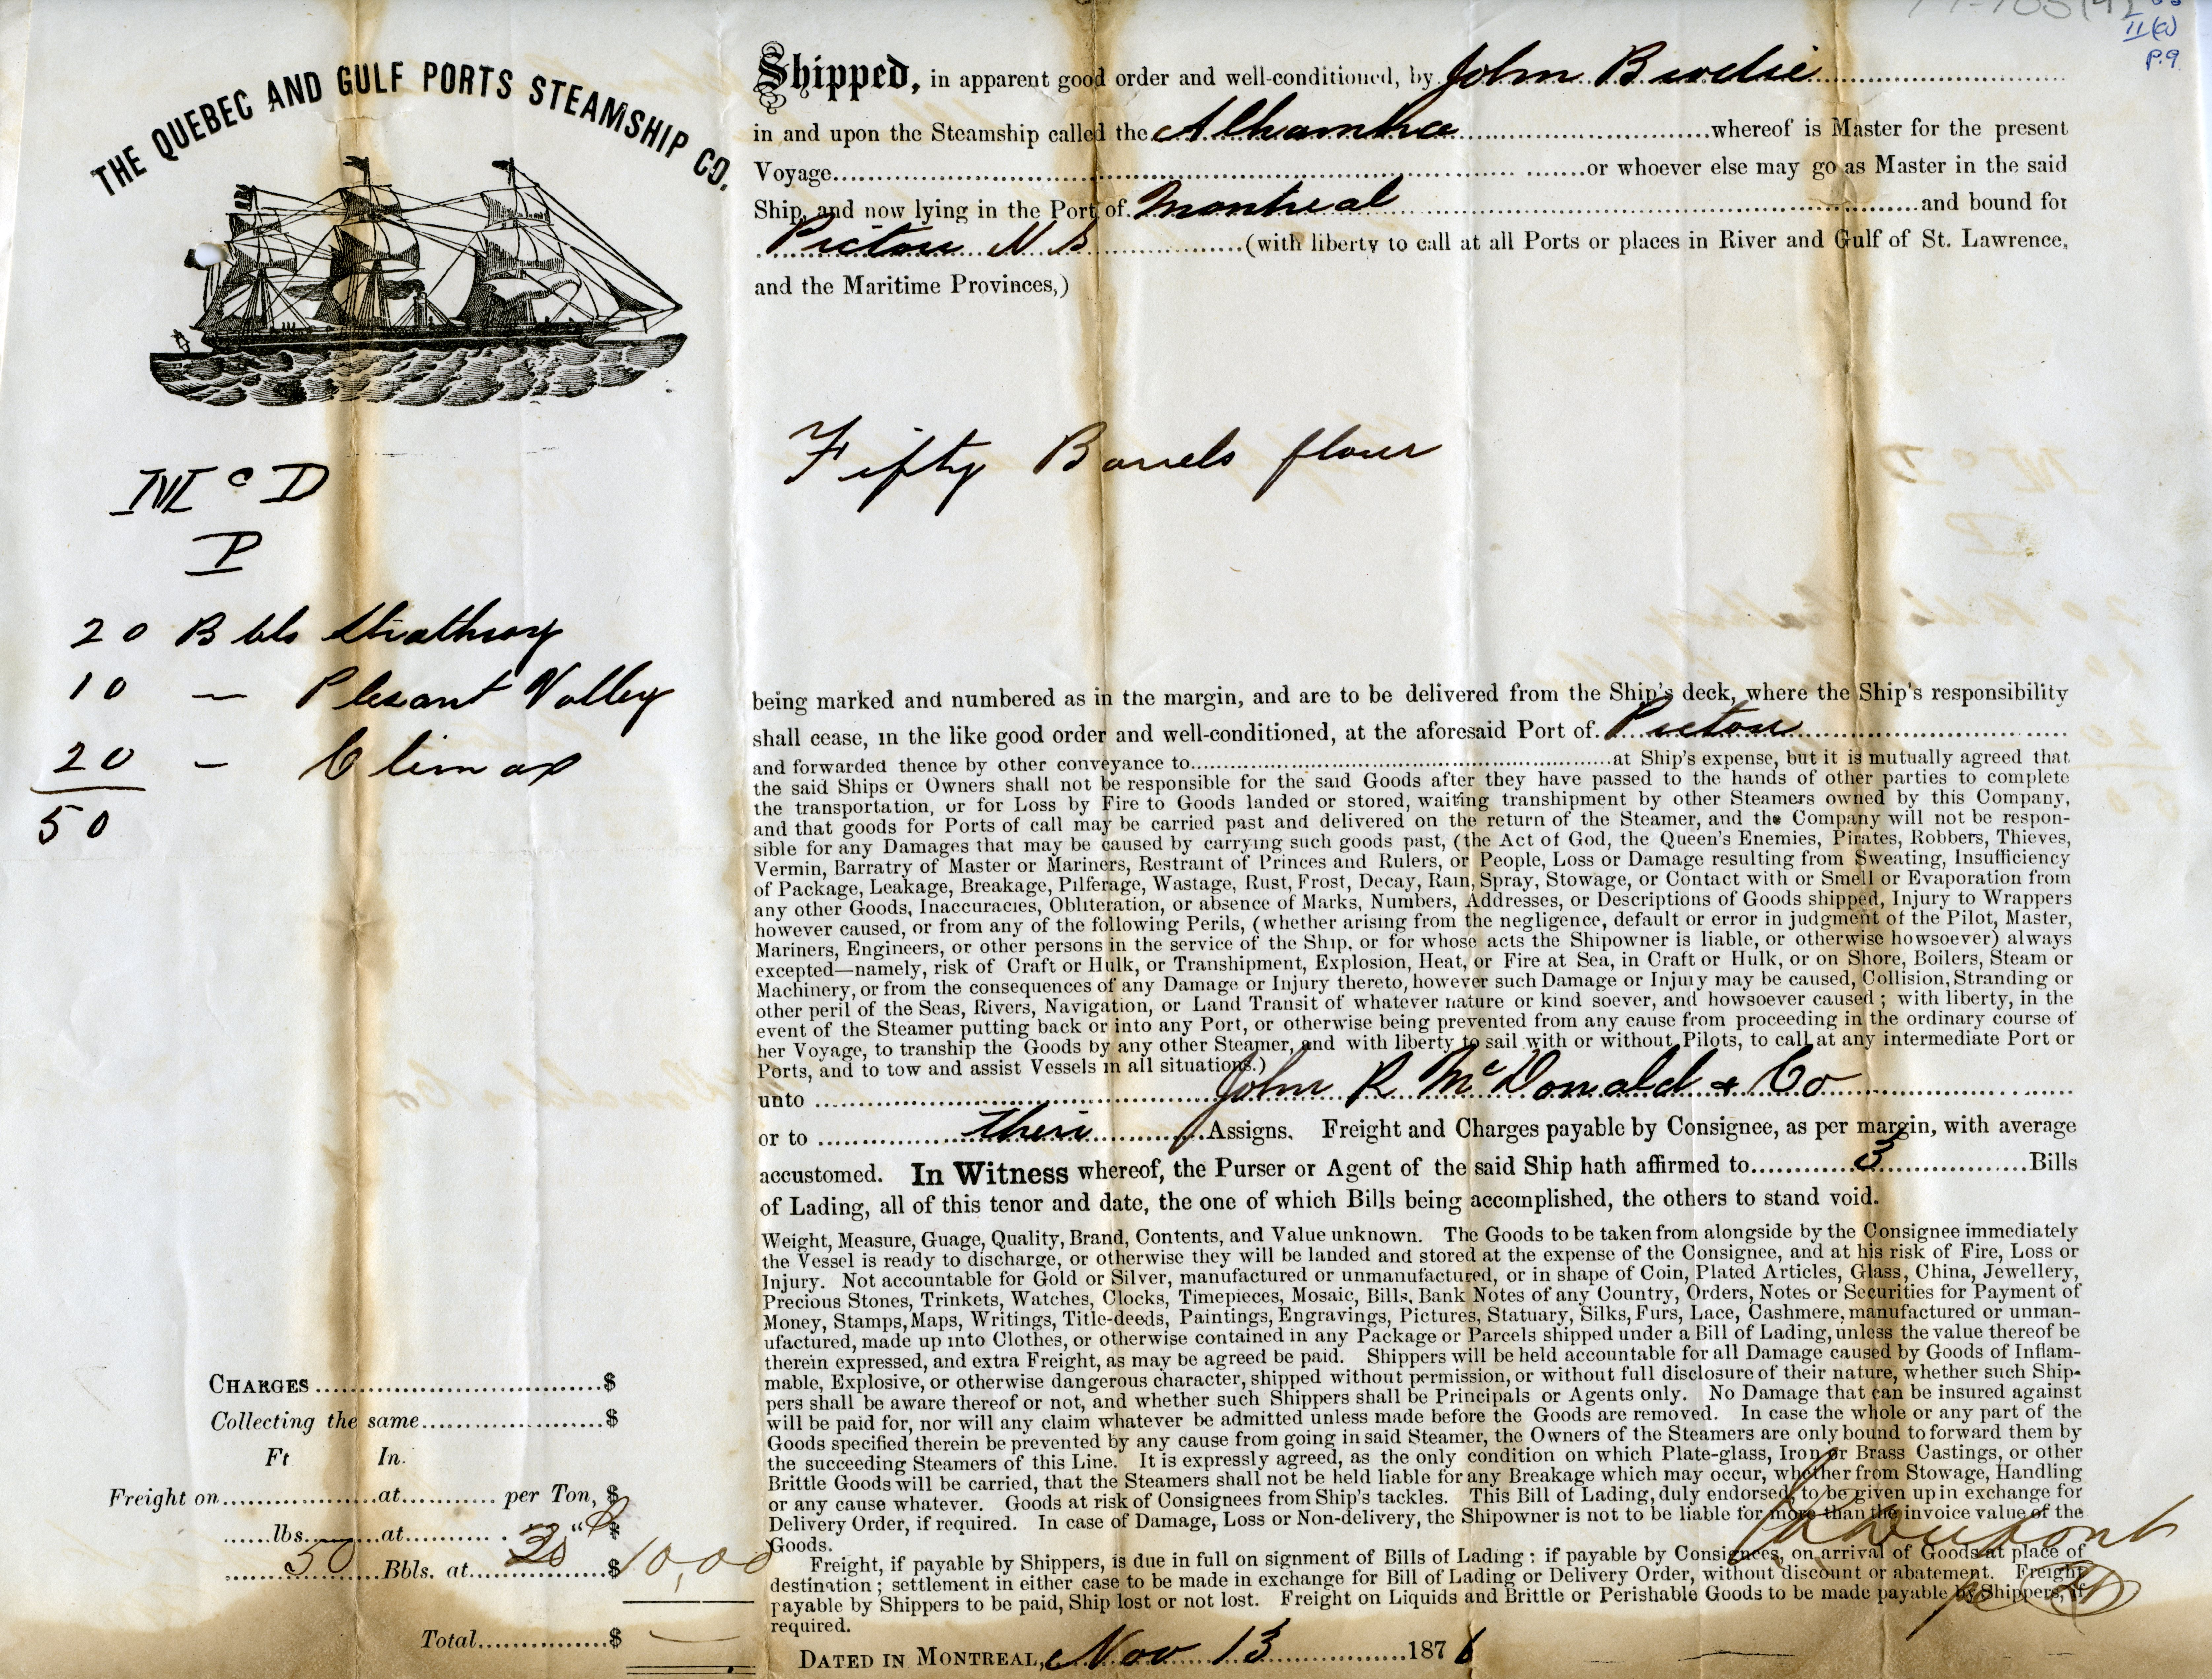 II(a)
P.9
THE QUEBEC AND GULF PORTS STEAMSHIP CO.
Mc D
P
20 Bbls Strathroy
10 — Plesant Valley
20 — Climax
50
CHARGES..............................$
Collecting the same....................$
Ft In.
Freight on................at.......... per Ton, $
......lbs.......at.......... " $
50 Bbls. at................$10,00
Total...............$
Shipped, in apparent good order and well-conditioned, by John
in and upon the Steamship called the Alhambra whereof is Master for the present
Voyage.................... or whoever else may go as Master in the said
Ship, and now lying in the Port of Montreal and bound for
Pictou N.S (with liberty to call at all Ports or places in River and Gulf of St. Lawrence,
and the Maritime Provinces,)
Fifty Barrels flour
being marked and numbered as in the margin, and are to be delivered from the Ship's deck, where the Ship's responsibility
shall cease, in the like good order and well-conditioned, at the aforesaid Port of Pictou
and forwarded thence by other conveyance to....................at Ship's expense, but it is mutually agreed that
the said Ships or Owners shall not be responsible for the said Goods after they have passed to the hands of other parties to complete
the transportation, or for Loss by Fire to Goods landed or stored, waiting transhipment by other Steamers owned by this Company,
and that goods for Ports of call may be carried past and delivered on the return of the Steamer, and the Company will not be respon-
sible for any Damages that may be caused by carrying such goods past, (the Act of God, the Queen's Enemies, Pirates, Robbers, Thieves,
Vermin, Barratry of Master or Mariners, Restraint of Princes and Rulers, or People, Loss or Damage resulting from Sweating, Insufficiency
of Package, Leakage, Breakage, Pilferage, Wastage, Rust, Frost, Decay, Rain, Spray, Stowage, or Contact with or Smell or Evaporation from
any other Goods, Inaccuracies, Obliteration, or absence of Marks, Numbers, Addresses, or Descriptions of Goods shipped, Injury to Wrappers
however caused, or from any of the following Perils, (whether arising from the negligence, default or error in judgment of the Pilot, Master,
Mariners, Engineers, or other persons in the service of the Ship, or for whose acts the Shipowner is liable, or otherwise howsoever) always
excepted—namely, risk of Craft or Hulk, or Transhipment, Explosion, Heat, or Fire at Sea, in Craft or Hulk, or on Shore, Boilers, Steam or
Machinery, or from the consequences of any Damage or Injury thereto, however such Damage or Injury may be caused, Collision, Stranding or
other peril of the Seas, Rivers, Navigation, or Land Transit of whatever nature or kind soever, and howsoever caused ; with liberty, in the
event of the Steamer putting back or into any Port, or otherwise being prevented from any cause from proceeding in the ordinary course of
her Voyage, to tranship the Goods by any other Steamer, and with liberty to sail with or without Pilots, to call at any intermediate Port or
Ports, and to tow and assist Vessels in all situations.)
unto John R McDonald & Co
or to Their Assigns. Freight and Charges payable by Consignee, as per margin, with average
accustomed. In Witness whereof, the Purser or Agent of the said Ship hath affirmed to 3 Bills
of Lading, all of this tenor and date, the one of which Bills being accomplished, the others to stand void.
Weight, Measure, Guage, Quality, Brand, Contents, and Value unknown. The Goods to be taken from alongside by the Consignee immediately
the Vessel is ready to discharge, or otherwise they will be landed and stored at the expense of the Consignee, and at his risk of Fire, Loss or
Injury. Not accountable for Gold or Silver, manufactured or unmanufactured, or in shape of Coin, Plated Articles, Glass, China, Jewellery,
Precious Stones, Trinkets, Watches, Clocks, Timepieces, Mosaic, Bills, Bank Notes of any Country, Orders, Notes or Securities for Payment of
Money, Stamps, Maps, Writings, Title-deeds, Paintings, Engravings, Pictures, Statuary, Silks, Furs, Lace, Cashmere, manufactured or unman-
ufactured, made up into Clothes, or otherwise contained in any Package or Parcels shipped under a Bill of Lading, unless the value thereof be
therein expressed, and extra Freight, as may be agreed be paid. Shippers will be held accountable for all Damage caused by Goods of Inflam-
mable, Explosive, or otherwise dangerous character, shipped without permission, or without full disclosure of their nature, whether such Ship-
pers shall be aware thereof or not, and whether such Shippers shall be Principals or Agents only. No Damage that can be insured against
will be paid for, nor will any claim whatever be admitted unless made before the Goods are removed. In case the whole or any part of the
Goods specified therein be prevented by any cause from going in said Steamer, the Owners of the Steamers are only bound to forward them by
the succeeding Steamers of this Line. It is expressly agreed, as the only condition on which Plate-glass, Iron or Brass Castings, or other
Brittle Goods will be carried, that the Steamers shall not be held liable for any Breakage which may occur, whether from Stowage, Handling
or any cause whatever. Goods at risk of Consignees from Ship's tackles. This Bill of Lading, duly endorsed, to be given up in exchange for
Delivery Order, if required. In case of Damage, Loss or Non-delivery, the Shipowner is not to be liable for more than the invoice value of the
Goods.
Freight, if payable by Shippers, is due in full on signment of Bills of Lading : if payable by Consignees, on arrival of Goods at place of
destination ; settlement in either case to be made in exchange for Bill of Lading or Delivery Order, without discount or abatement. Freight
payable by Shippers to be paid, Ship lost or not lost. Freight on Liquids and Brittle or Perishable Goods to be made payable by Shippers, if
required.
DATED IN MONTREAL, Nov 13 1876